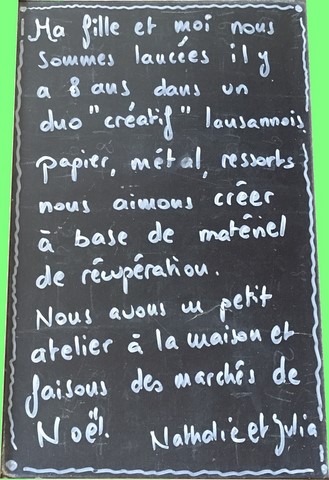 Ma fille et moi nous
sommes lancées il y
a 8 ans dans un
duo "créatif" lausannois
papier, métal, ressorts
nous aimons créer
à base de matériel
de récupération.
Nous avons un petit
atelier à la maison et
faisons des marchés de
Noël. Nathalie et Julia